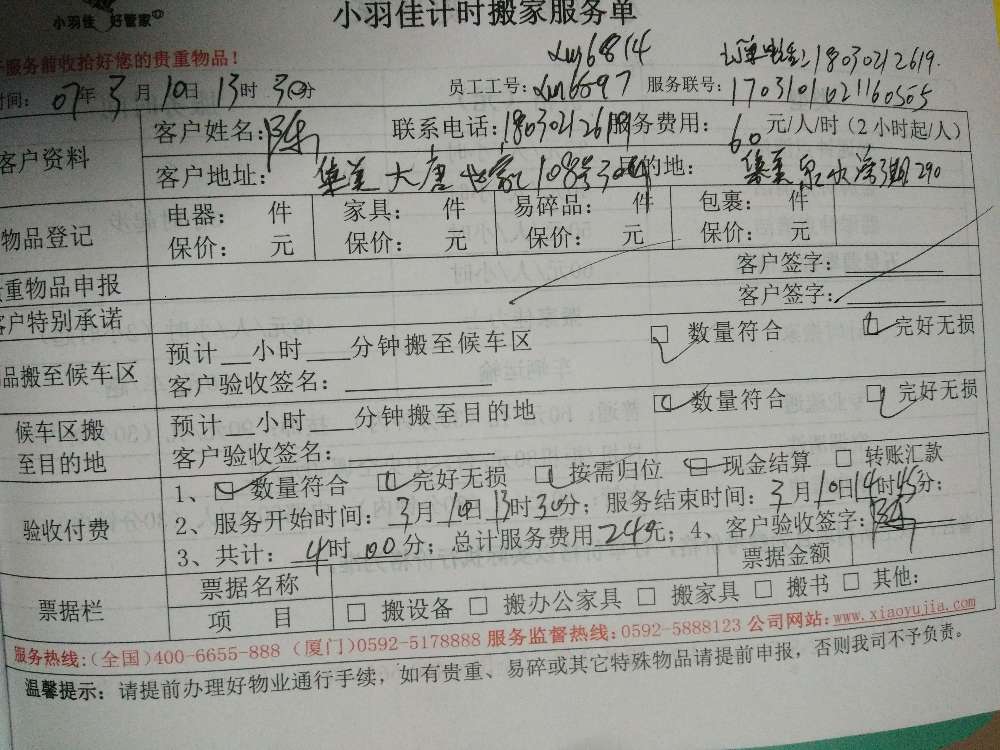 小羽佳 好管家
小羽佳计时搬家服务单
服务前收拾好您的贵重物品!
6814 18030212619
时间: 07年3月10日13时30分 员工工号: 6597 服务联号: 1703101021160505
客户资料 客户姓名: 陈 联系电话: 18030212619 服务费用: 60元/人/时(2小时起/人)
客户地址: 集美大唐世家108号304 目的地: 集美 290
物品登记 电器: 件 家具: 件 易碎品: 件 包裹: 件
保价: 元 保价: 元 保价: 元 保价: 元
重物品申报 客户签字:
客户特别承诺 客户签字:
品搬至候车区 预计__小时___分钟搬至候车区 □ 数量符合 □ 完好无损
客户验收签名:
候车区搬至目的地 预计__小时___分钟搬至目的地 □ 数量符合 □ 完好无损
客户验收签名:
验收付费 1、□ 数量符合 □ 完好无损 □ 按需归位 □ 现金结算 □ 转账汇款
2、服务开始时间: 3月10日13时30分; 服务结束时间: 3月10日14时45分;
3、共计: 4时00分; 总计服务费用240元; 4、客户验收签字: 陈
票据栏 票据名称 票据金额
项 目 □ 搬设备 □ 搬办公家具 □ 搬家具 □ 搬书 □ 其他:
服务热线:(全国)400-6655-888 (厦门)0592-5178888 服务监督热线: 0592-5888123 公司网站: www.xiaoyujia.com
温馨提示: 请提前办理好物业通行手续, 如有贵重、易碎或其它特殊物品请提前申报, 否则我司不予负责。